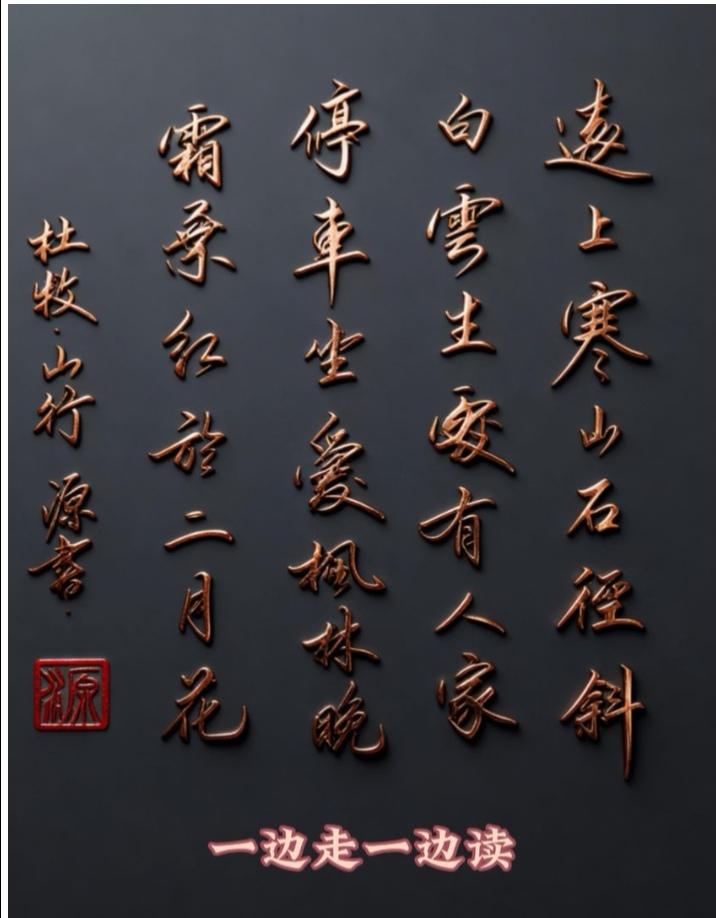 遠上寒山石徑斜
白雲生處有人家
停車坐愛楓林晚
霜葉紅於二月花
杜牧·山行 源書
源
一边走一边读